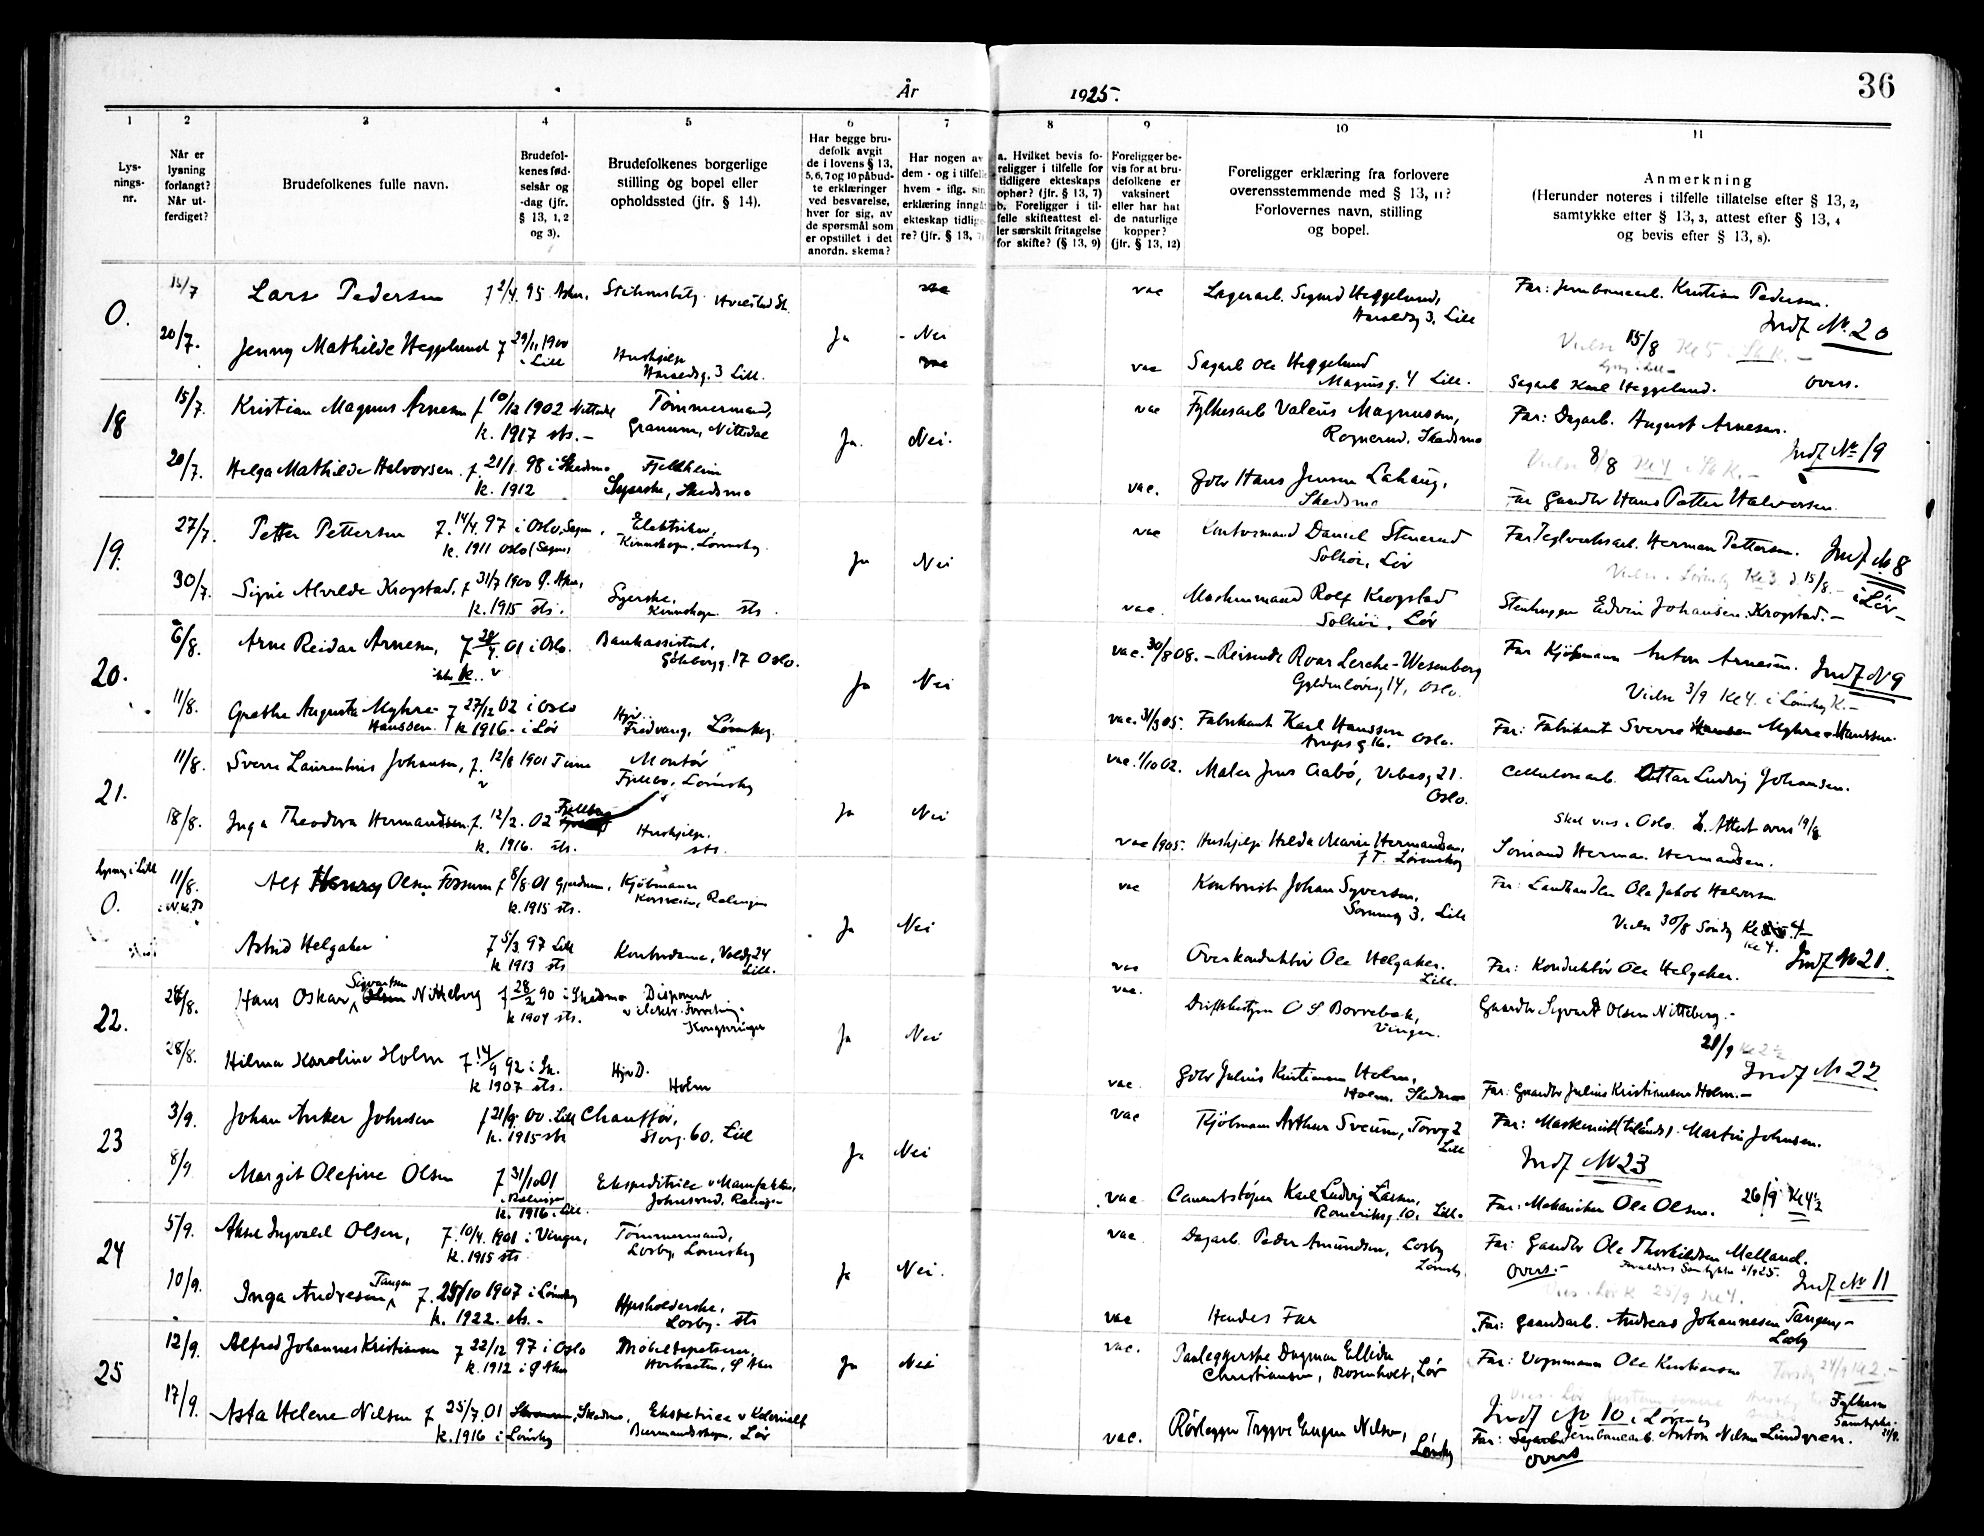 36
År
1925.
1 2 3 4 5 6 7 8 9 10 11
Lys-
nings-
nr.
Når er
lysning
forlangt?
Når ut-
ferdiget?
Brudefolkenes fulle navn.
Brudefol-
kenes fød-
selsår og
-dag (jfr.
§ 13, 1, 2
og 3).
Brudefolkenes borgerlige
stilling og bopel eller
opholdssted (jfr. § 14).
Har begge bru-
defolk avgit
de i lovens § 13,
5, 6, 7 og 10 påbud-
te erklæringer
ved besvarelse,
hver for sig, av
de spørsmål som
er opstillet i det
anordn. skema?
Har nogen av
dem - og i tilfelle
hvem - iflg. sin
erklæring inngåt
ekteskap tidlige-
re? (jfr. § 13, 7)
a. Hvilket bevis fo-
religger i tilfelle for
tidligere ekteskaps
ophør? (jfr. § 13, 7)
b. Foreligger i til-
felle skifteattest el-
ler særskilt fritagelse
for skifte? (§ 13, 9)
Foreligger be-
vis for at bru-
defolkene er
vaksinert
eller har hat
de naturlige
kopper?
(jfr. § 13, 12)
Foreligger erklæring fra forlovere
overensstemmende med § 13, 11?
Forlovernes navn, stilling
og bopel.
Anmerkning
(Herunder noteres i tilfelle tillatelse efter § 13, 2,
samtykke efter § 13, 3, attest efter § 13, 4
og bevis efter § 13, 8).
O. 15/7 Lars Pedersen f 2/4. 95 Asker. Hvalstad St. vac Lagerarb. Sigurd Heggelund, Far: Jernbanearb. Kristian Pedersen.
Haraldsg 3. Lill Indf No 20
20/7. Jenny Mathilde Heggelund f 29/11 1900 Hushjelp Ja Nei 15/8
i Lill Haraldsg. 3 Lill. vac Sagarb Ole Heggelund
Magnusg. 4 Lill. Sagarb Karl Heggelund. overs.
18 15/7. Kristian Magnus Arnesen f 10/12 1902 Nittedal Tømmermand, vac Fylkesarb Valeus Magnussen, Far: Dagarb. August Arnesen.
k. 1917 sts. Granum, Nittedal Ja. Nei. Rognerud, Skedsmo Indf No 19
20/7. Helga Mathilde Halvorsen. f. 21/1. 98 i Skedsmo Fjellheim 8/8
k. 1912 Syerske, Skedsmo vac. Gbr Hans Jensen Lahaug,
Skedsmo Far Gaardbr Hans Petter Halvorsen.
19. 27/7. Petter Pettersen f. 14/4. 97 i Oslo, Sagen, Elektriker, vac Daniel Stenerud Far Teglverksarb. Herman Pettersen. Indf No 8
k. 1911 Oslo (Sagene) Kinnskogen, Lørenskog Ja Nei Solhøi, Lør
30/7. Signe Alvilde Krogstad, f 31/7 1900 Ø. Aker, Syerske, Maskinmand Rolf Krogstad i Lør
k. 1915 sts. Kinnskogen sts vac. Solhøi. Lør Stenhugger Edvin Johansen Krogstad.
20. 6/8. Arne Reidar Arnesen, f 01 i Oslo. Bankassistent, vac. 30/8 08. Reisende Roar Lerche-Wesenberg Far Kjøbmann Anton Arnesen. Indf No 9
ikke k. Göteborgg. 17 Oslo. Ja Nei Gyldenløvesg 14, Oslo.
11/8. Grethe Augusta Myhre- f 27/12 02 i Oslo Hjv. Vielse 3/9 Kl 4. i Lørenskog K.
Hanssen. k 1916. i Lør Fredvang, Lørenskog. vac. 31/3 05. Fabrikant Karl Hanssen Far: Fabrikant Sverre Myhre Hanssen.
g 16. Oslo.
21. 11/8. Sverre Laurentius Johansen, f. 12/8 1901 Tune Montør vac. 1/10 02. Maler Jens Aabø, Vibesg 21. Cellulosearb. Ottar Ludvig Johansen.
Fjellbo, Lørenskog Ja Nei Oslo.
18/8. Inga Theodora Hermandsen. f. 12/2. 02 Hushjelp. Skal vies i Oslo. L. Attest overs 19/8
k. 1916. sts. sts. vac 1905. Hushjelp Hilda Marie Hermandsen, Sømand Herman Hermandsen.
f T. Lørenskog
lysning i Lill
O. 11/8. Alf Henry Olsen Fossum f 8/8. 01 Gjerdrum, Kjøbmann vac Kontorist Johan Syversen, Far: Landhandler Ole Jakob Halvorsen
k. 1915 sts. Rælingen Ja Nei 3, Lill Vielse 30/8 Søndag Kl 4
Astrid Helgaker f 5/3. 97 Lill Kontordame, Voldg 24 Overkonduktør Ole Helgaker. Indf No 21.
k 1913 sts Lill. vac Lill. Far: Konduktør Ole Helgaker.
22. 26/8. Hans Oskar Sigvartsen Nitteberg f 28/2 90 i Skedsmo Disponent vac. Driftsbestyrer O S Borrebæk, Gaardbr Sigvart Olsen Nitteberg.
k 1904 sts. Kongsvinger Ja Nei Vinger.
28/8. Hilma Karoline Holm f 14/9 92 i Sk. Hjv D. Gbr Julius Kristiansen Holm, Indf No 22
k 1907 sts. Holm vac. Holm. Skedsmo Far: Gaardbr Julius Kristiansen Holm.
23 3/9. Johan Anker Johnsen f 21/9. 00. Lill Chauffør, vac Kjøbmann Arthur Sveum, Torvg 2 Far: Maskinist (tilønds). Martin Johnsen.
k. 1915 sts Storg. 60. Lill Ja Nei Lill Indf No 23
8/9 Margit Olefine Olsen f 31/10 01 Ekspeditrice v Manufaktur,
i Rælingen Johnsrud, Rælingen vac Cementstøper Karl Ludvig Larsen, Far: Mekaniker Ole Olsen. 26/9 Kl 4½
k. 1916. Lill. Romeriksg. 10, Lill.
24 5/9. Aksel Ingvald Olsen, f. 10/4. 1901 i Vinger, Tømmermand, vac Dagarb. Peder Amundsen, Losby Far: Gaardbr Ole Thorkildsen Melland.
k. 1915 sts Losby, Lørenskog Ja Nei. Lørenskog. overs. Indf No 11
10/9. Inga Andresen Tangen f. 25/10 1907 i Lørenskog Husholderske, vac Hendes Far Far: Gaardsarb. Andreas Johannesen Tangen
k. 1922. sts. Losby. sts Losby
25 12/9. Alfred Johannes Kristiansen f 22/12 97 i Oslo Møbeltapetserer, vac. Dagmar Ellida Far: Vognmann Ole Kristiansen
k. 1912 i Ø Aker Ø Aker Ja Nei Christiansen, Rosenholt, Lør
17/9. Asta Helene Nilsen f 25/7. 01 Skedsmo, Ekspeditrice v Kolonialf Indf No 10 i Lørenskog
k. 1916 i Lørenskog Lør vac. Rørlegger Trygve Eugen Nilsen, Far: Jernbanearb. Anton Nilsen Lundgren.
Lørenskog overs